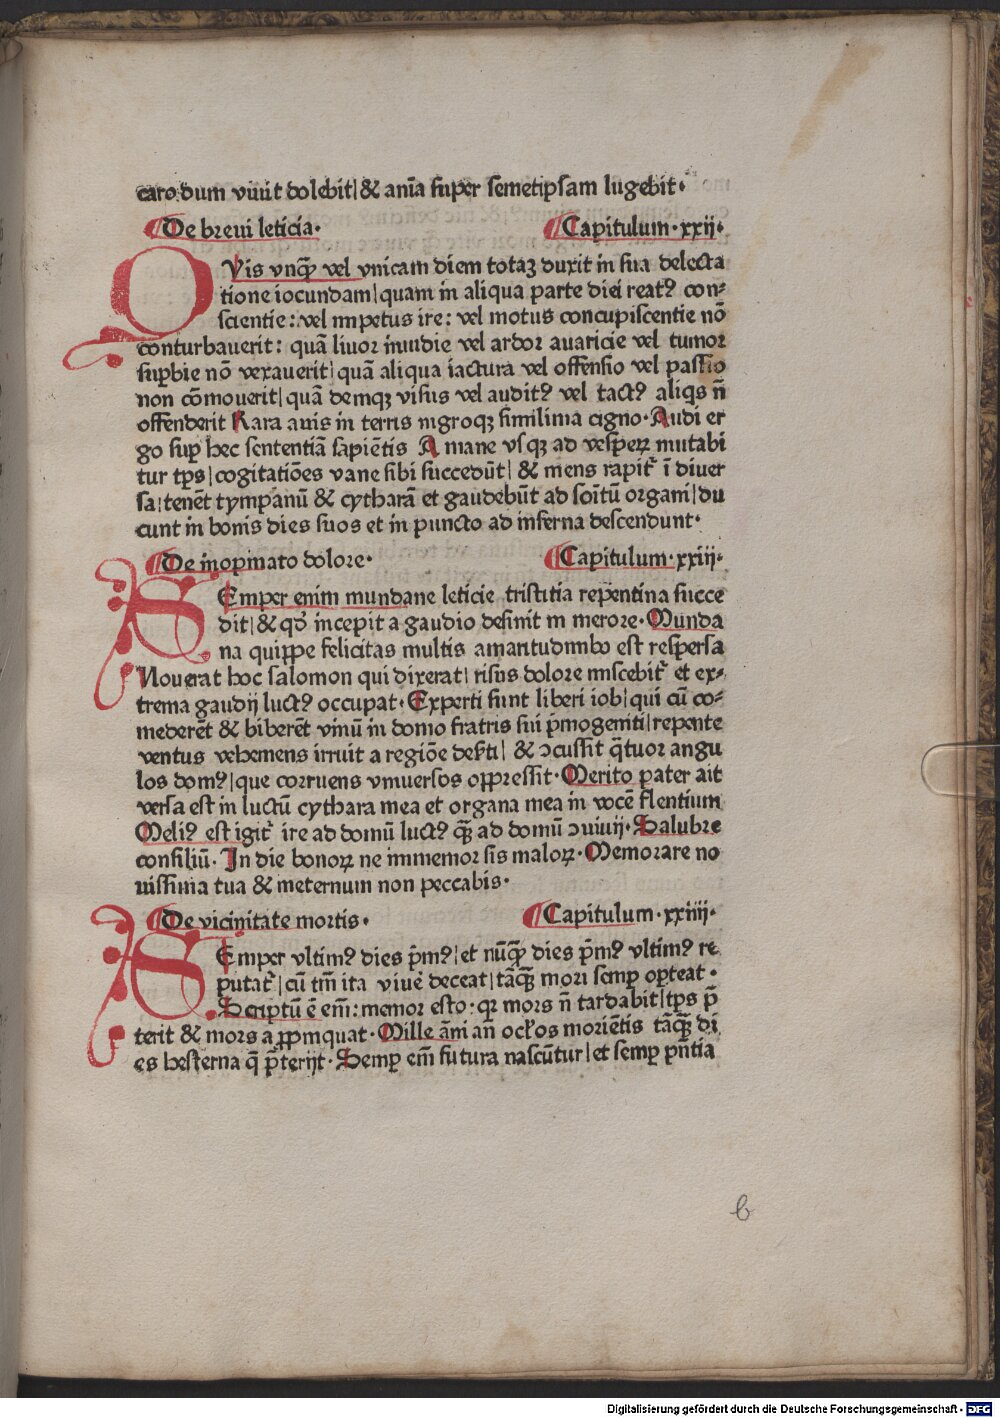 caro dum viuit dolebit|& ania̅ super semetipsam lugebit·
De breui leticia· Capitulum·xxij·
QVis vnq̅ꝫ vel vnicam diem totaꝫ duxit in sua delecta
tione iocundam|quam in aliqua parte diei reatꝰ con-
scientie: vel impetus ire: vel motus concupiscentie nō
conturbauerit: quā liuor inuidie vel ardor auaricie vel tumor
supbie nō vexauerit|quā aliqua iactura vel offensio vel passio
non cōmouerit|quā demqꝫ visus vel auditꝰ vel tactꝰ aliqs n̄
offenderit Rara auis in terris nigroqꝫ simillima cigno·Audi er
go suꝑ hec sententiā sapiētis A mane vsqꝫ ad vesperꝝ mutabi
tur tp̄s|cogitatiōes vane sibi succedūt|& mens rapit᷑ ī diuer
sa|tenēt tympanū & cytharā et gaudebūt ad soītū organi|du
cunt in bonis dies suos et in puncto ad inferna descendunt·
De inopinato dolore· Capitulum·xxiij·
SEmper enim mundane leticie tristitia repentina succe
dit|& qd̕ incepit a gaudio desinit in merore·Munda
na quippe felicitas multis amaritudinibꝰ est respersa
Nouerat hoc salomon qui dixerat|risus dolore miscebit᷑ et ex-
trema gaudij luctꝰ occupat·Experti sunt liberi iob|qui cū co-
mederēt & biberēt vinū in domo fratris sui p̄mogeniti|repente
ventus vehemens irruit a regiōe deẜti|& ↄcussit q̄tuor angu
los domꝰ|que corruens vniuersos oppressit·Merito pater ait
versa est in luctū cythara mea et organa mea in vocē flentium
Meliꝰ est igit᷑ ire ad domū luctꝰ q̅ꝫ ad domū ↄuiuij·Salubre
consiliū·In die bonoꝝ ne immemor sis maloꝝ·Memorare no
uissima tua & ineternum non peccabis·
De vicinitate mortis· Capitulum·xxiiij·
SEmper vltimꝰ dies p̄mꝰ|et nūq̅ꝫ dies p̄mꝰ vltimꝰ re
putat᷑|cū tm̄ ita viuē deceat|tāq̅ꝫ mori semꝑ oꝑteat·
Scriptū ē em̄: memor esto·qr mors n̄ tardabit|tp̄s p̄
terit & mors a ꝓpinquat·Mille āni an̄ ocl̕os moriētis tāq̅ꝫ di
es hesterna q̄ p̄terijt·Semꝑ em̄ futura nascūtur|et semꝑ p̄ntia
b
Digitalisierung gefördert durch die Deutsche Forschungsgemeinschaft · DFG